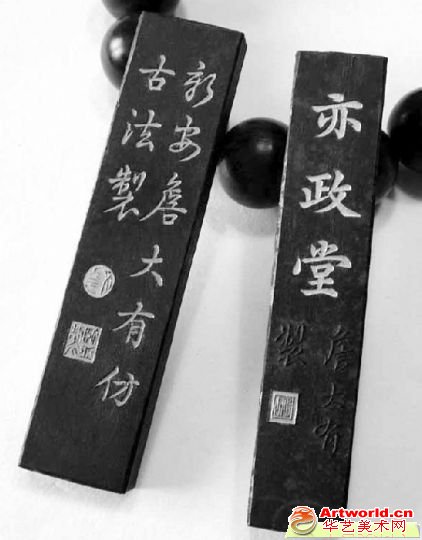 新安詹大有仿
古法製
亦政堂
詹大有
製
Artworld.cn
华艺美术网